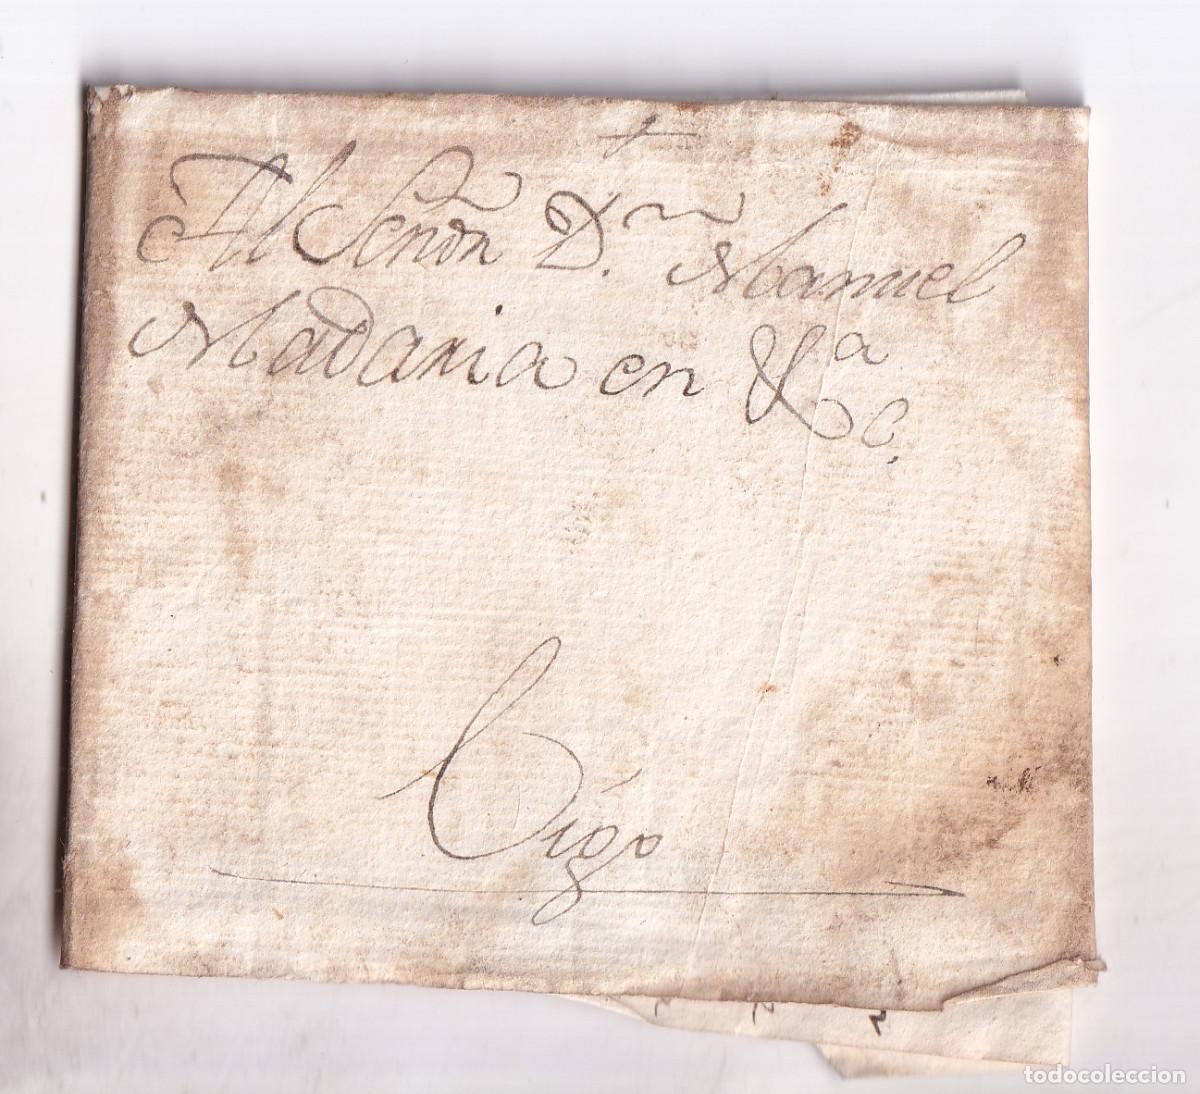 †
Al Señor D.n Manuel
Madania en &.a C.
Vigo
todocoleccion